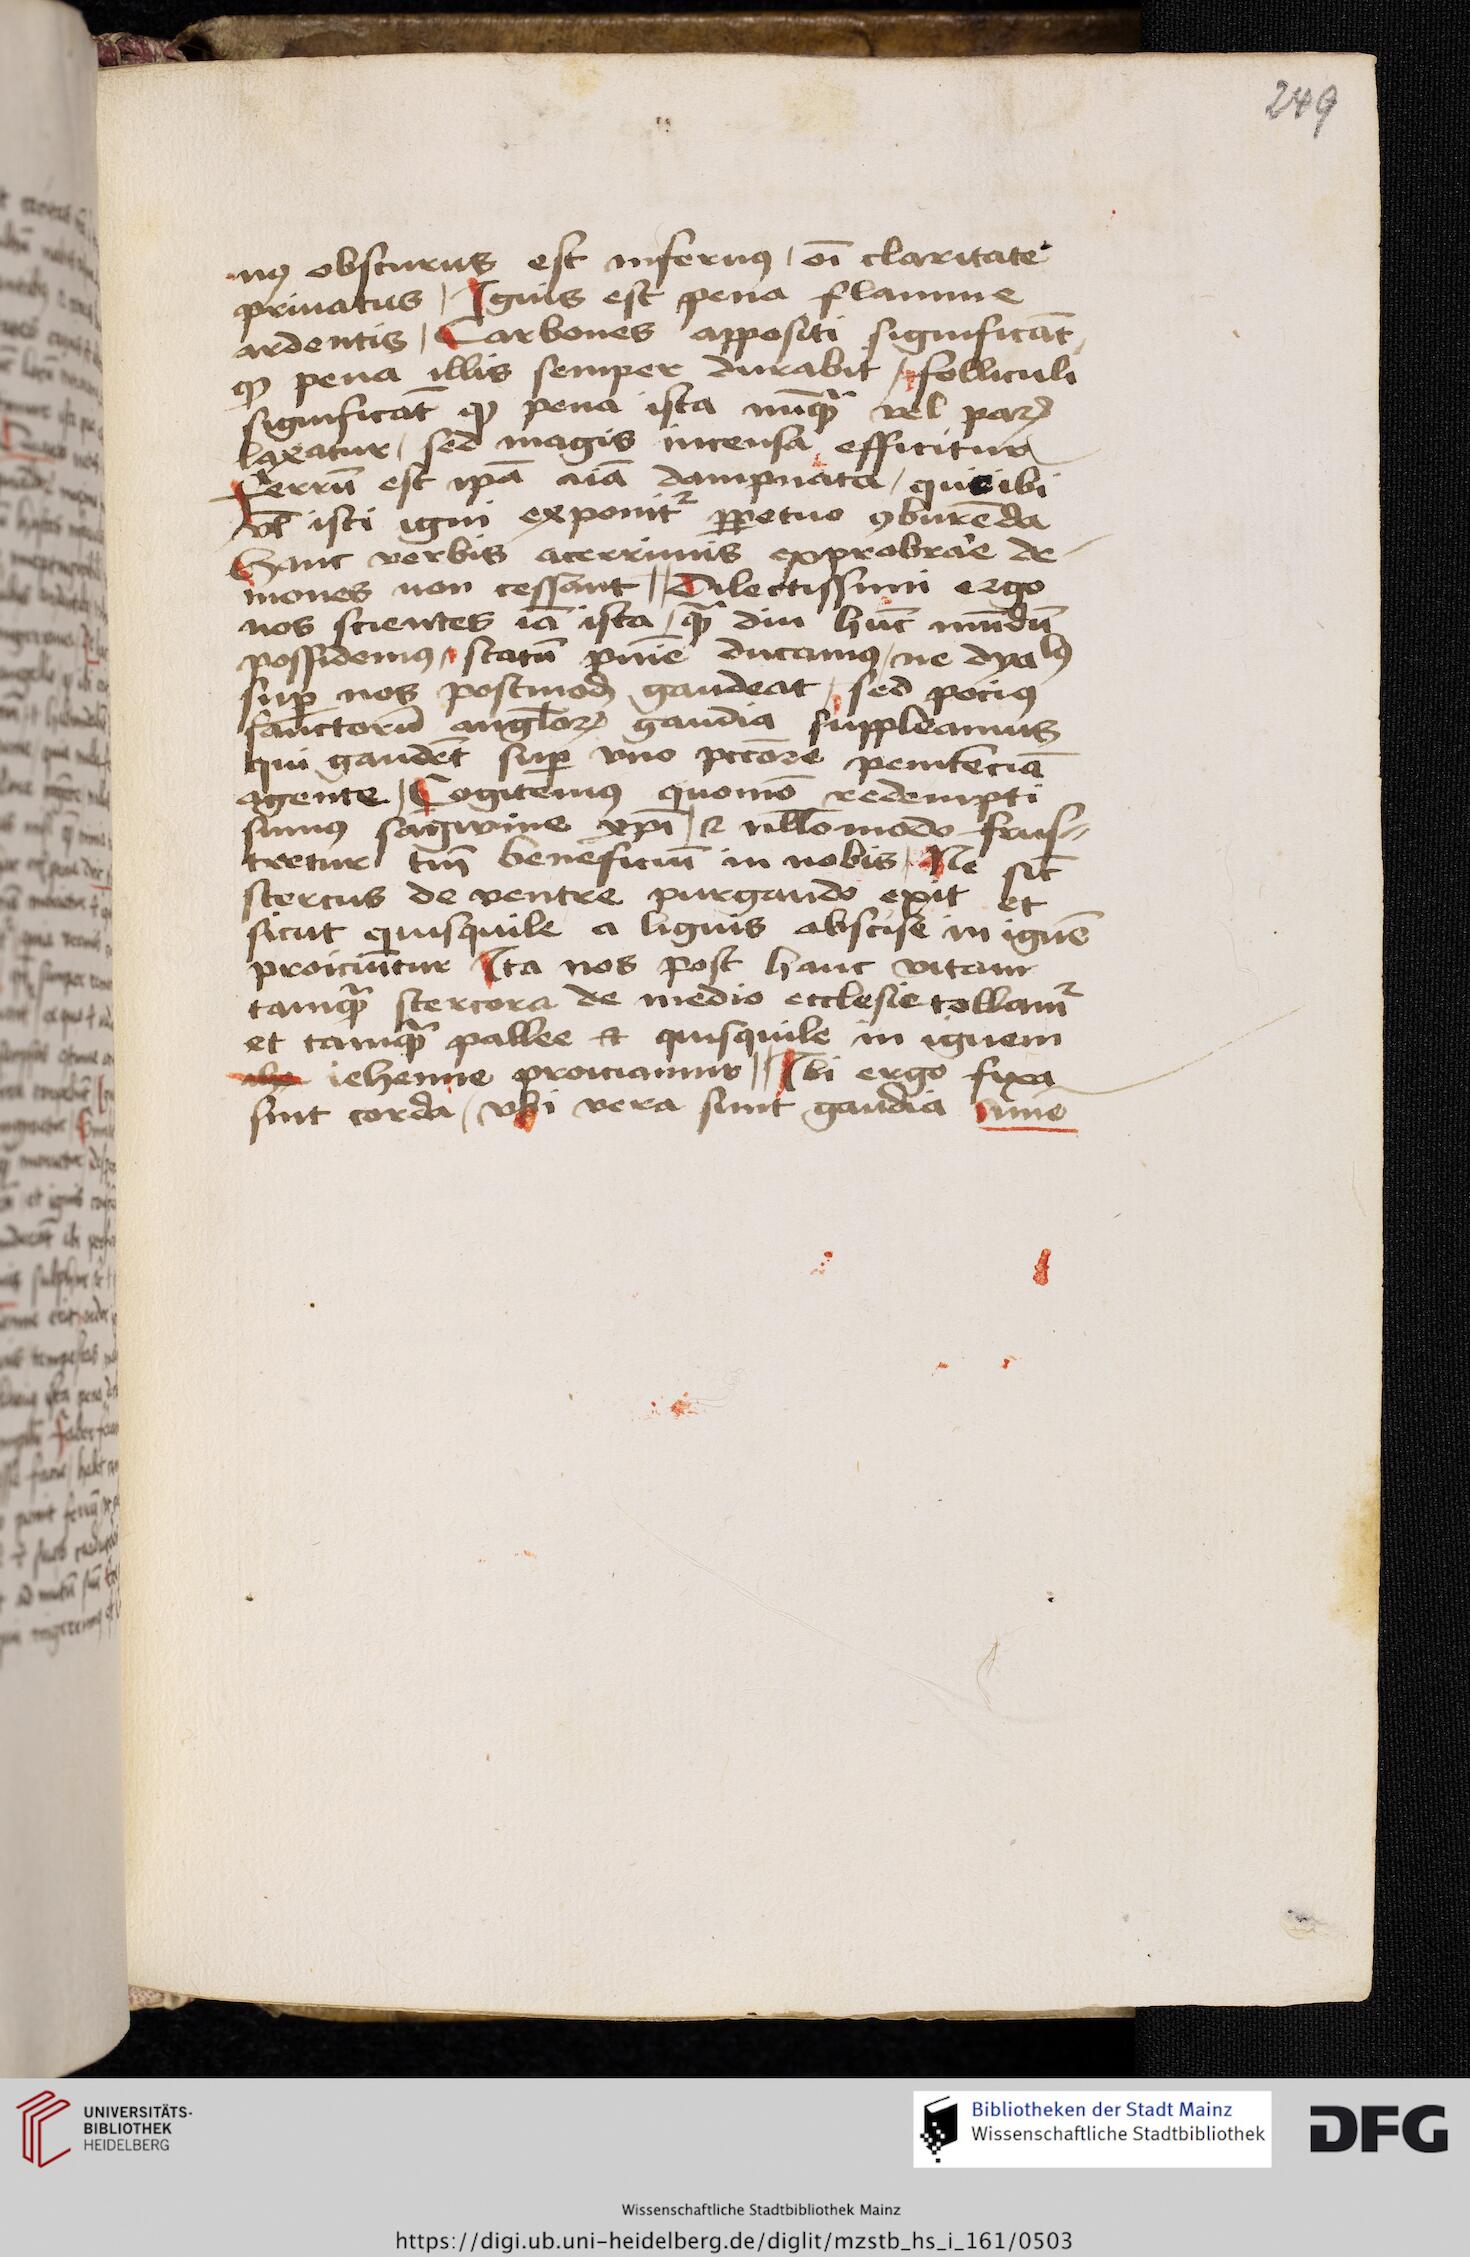 249
nꝯ obscurus est infernꝯ / oī claritate
priuatus / Ignis est pena flamme
ardentis / Carbones appositi significāt
ꝙ pena illis semper durabit / folliculi
significāt ꝙ pena ista nūꝙᷓ vel parꝝ
laxatur / sed magis incensa efficitur
Ferrū est ipā aīa dampnata / que ibi
vl̄ isti igni exponitᷣ ꝑpetuo ꝯburēda
Hanc verbis acerrimis exprobrare de
mones non cessant // Dilectissimi ergo
nos scientes iā ista / ꝙᷓ diu hūc mūdū
possidemꝯ / statū pnīe ducamꝯ / ne dyalꝯ
suꝑ nos postmodꝫ gaudeat / sed pociꝯ
sanctorū angloꝝ gaudia suppleamus
qui gaudēt suꝑ vno pccōre penitenciā
agente / Cogitemꝯ quomō redempti
sumꝯ sangwine xpī / et nllō modo frus-
tretur tm̄ beneficiū in nobis / Ne sic̄
stercus de ventre purgando exit et
sicut quisquile a lignis abscise in ignē
proiciūtur Ita nos post hanc vitam
tamꝙᷓ stercora de medio ecclesie tollamᷣ
et tamꝙᷓ pallee et quisquile in ignem
iehenne proiciamur // Ibi ergo fixa
sint corda / vbi vera sunt gaudia
UNIVERSITÄTS-
BIBLIOTHEK
HEIDELBERG
Bibliotheken der Stadt Mainz
Wissenschaftliche Stadtbibliothek
DFG
Wissenschaftliche Stadtbibliothek Mainz
https://digi.ub.uni-heidelberg.de/diglit/mzstb_hs_i_161/0503